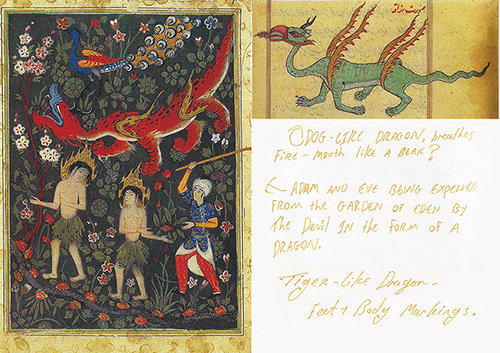 صورت اژدها
DOG-LIKE DRAGON, breathes
FIRE - MOUTH LIKE A BEAK?
ADAM AND EVE BEING EXPELLED
FROM THE GARDEN OF EDEN BY
The Devil IN the FORM OF A
DRAGON.
Tiger-like Dragon-
Feet & Body Markings.